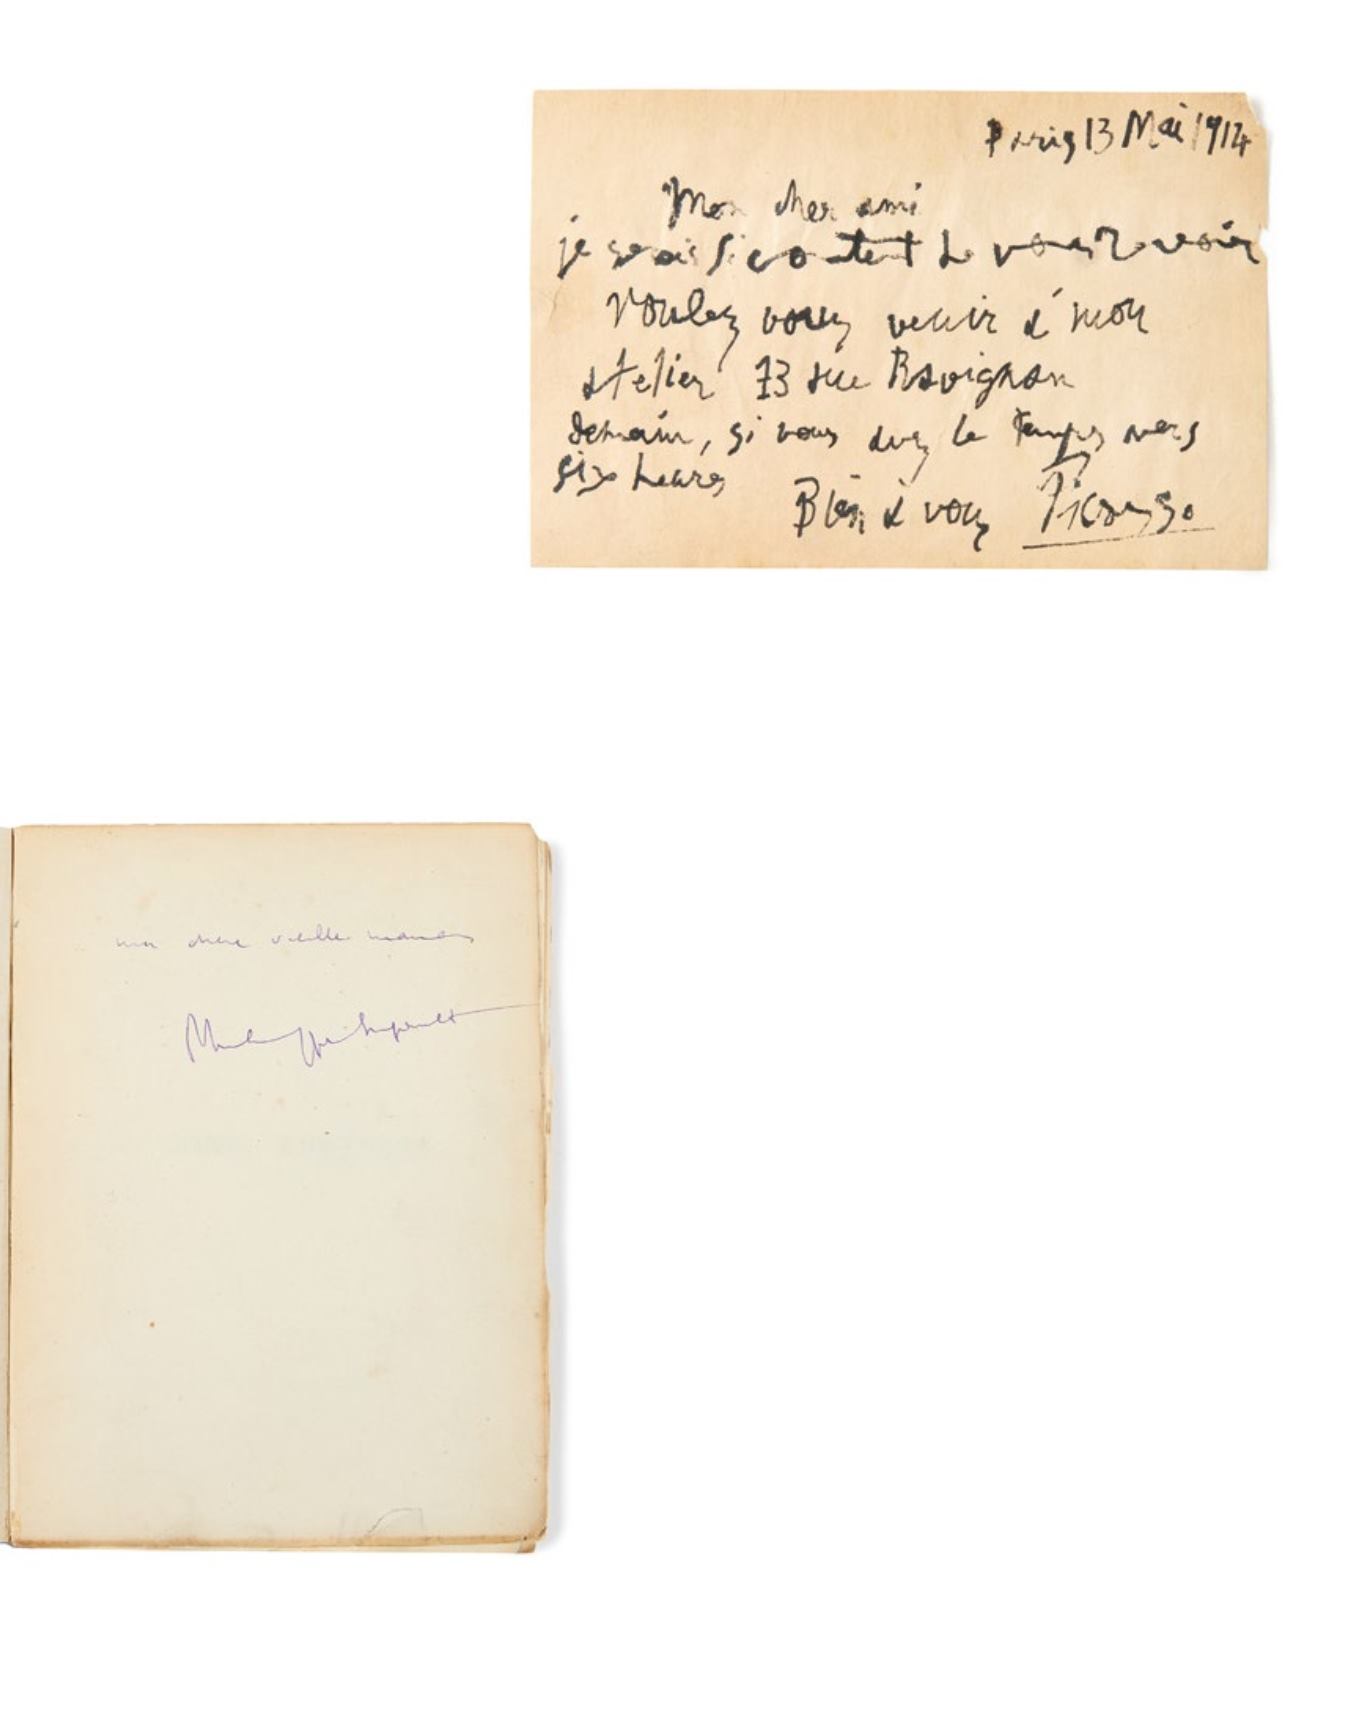 Paris 13 Mai 1914
Mon cher ami
je serais si content de vous revoir
Voulez vous venir à mon
atelier 13 rue Ravignan
demain, si vous avez le temps vers
six heures
Bien à vous Picasso
ma chère vieille maman
Philippe Soupault